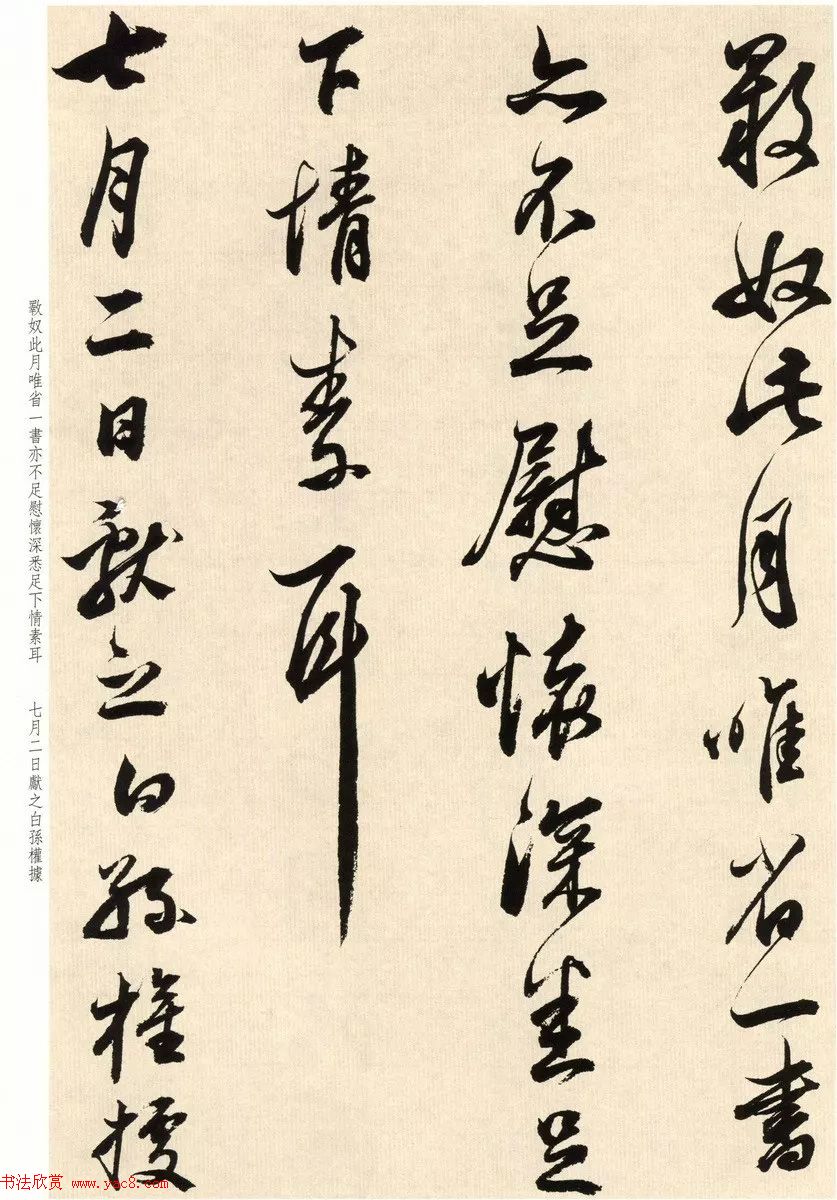 㺉奴此月唯省一書
亦不足慰懷深悉足
下情素耳
七月二日獻之白孫權據
㺉奴此月唯省一書亦不足慰懷深悉足下情素耳　七月二日獻之白孫權據
书法欣赏 www.yac8.com